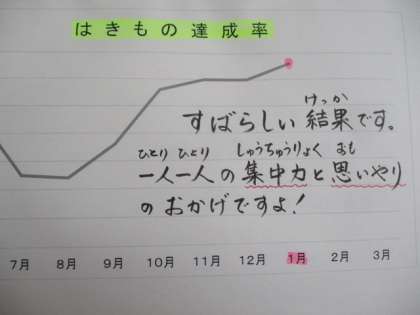 はきもの達成率
けっか
すばらしい結果です。
ひとり ひとり しゅうちゅうりょく おも
一人一人の集中力と思いやり
のおかげですよ!
7月 8月 9月 10月 11月 12月 1月 2月 3月